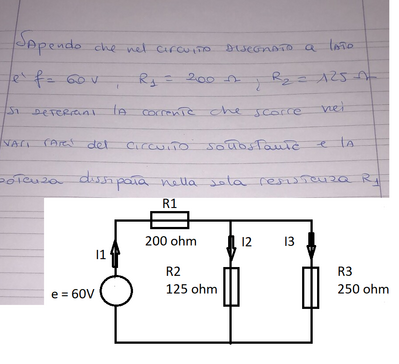 Sapendo che nel circuito disegnato a lato
e' f = 60 V , R1 = 200 Ω ; R2 = 125 Ω
si determini la corrente che scorre nei
vari rami del circuito sottostante e la
potenza dissipata nella sola resistenza R1
R1
200 ohm
I1
I2
I3
R2
125 ohm
R3
250 ohm
e = 60V